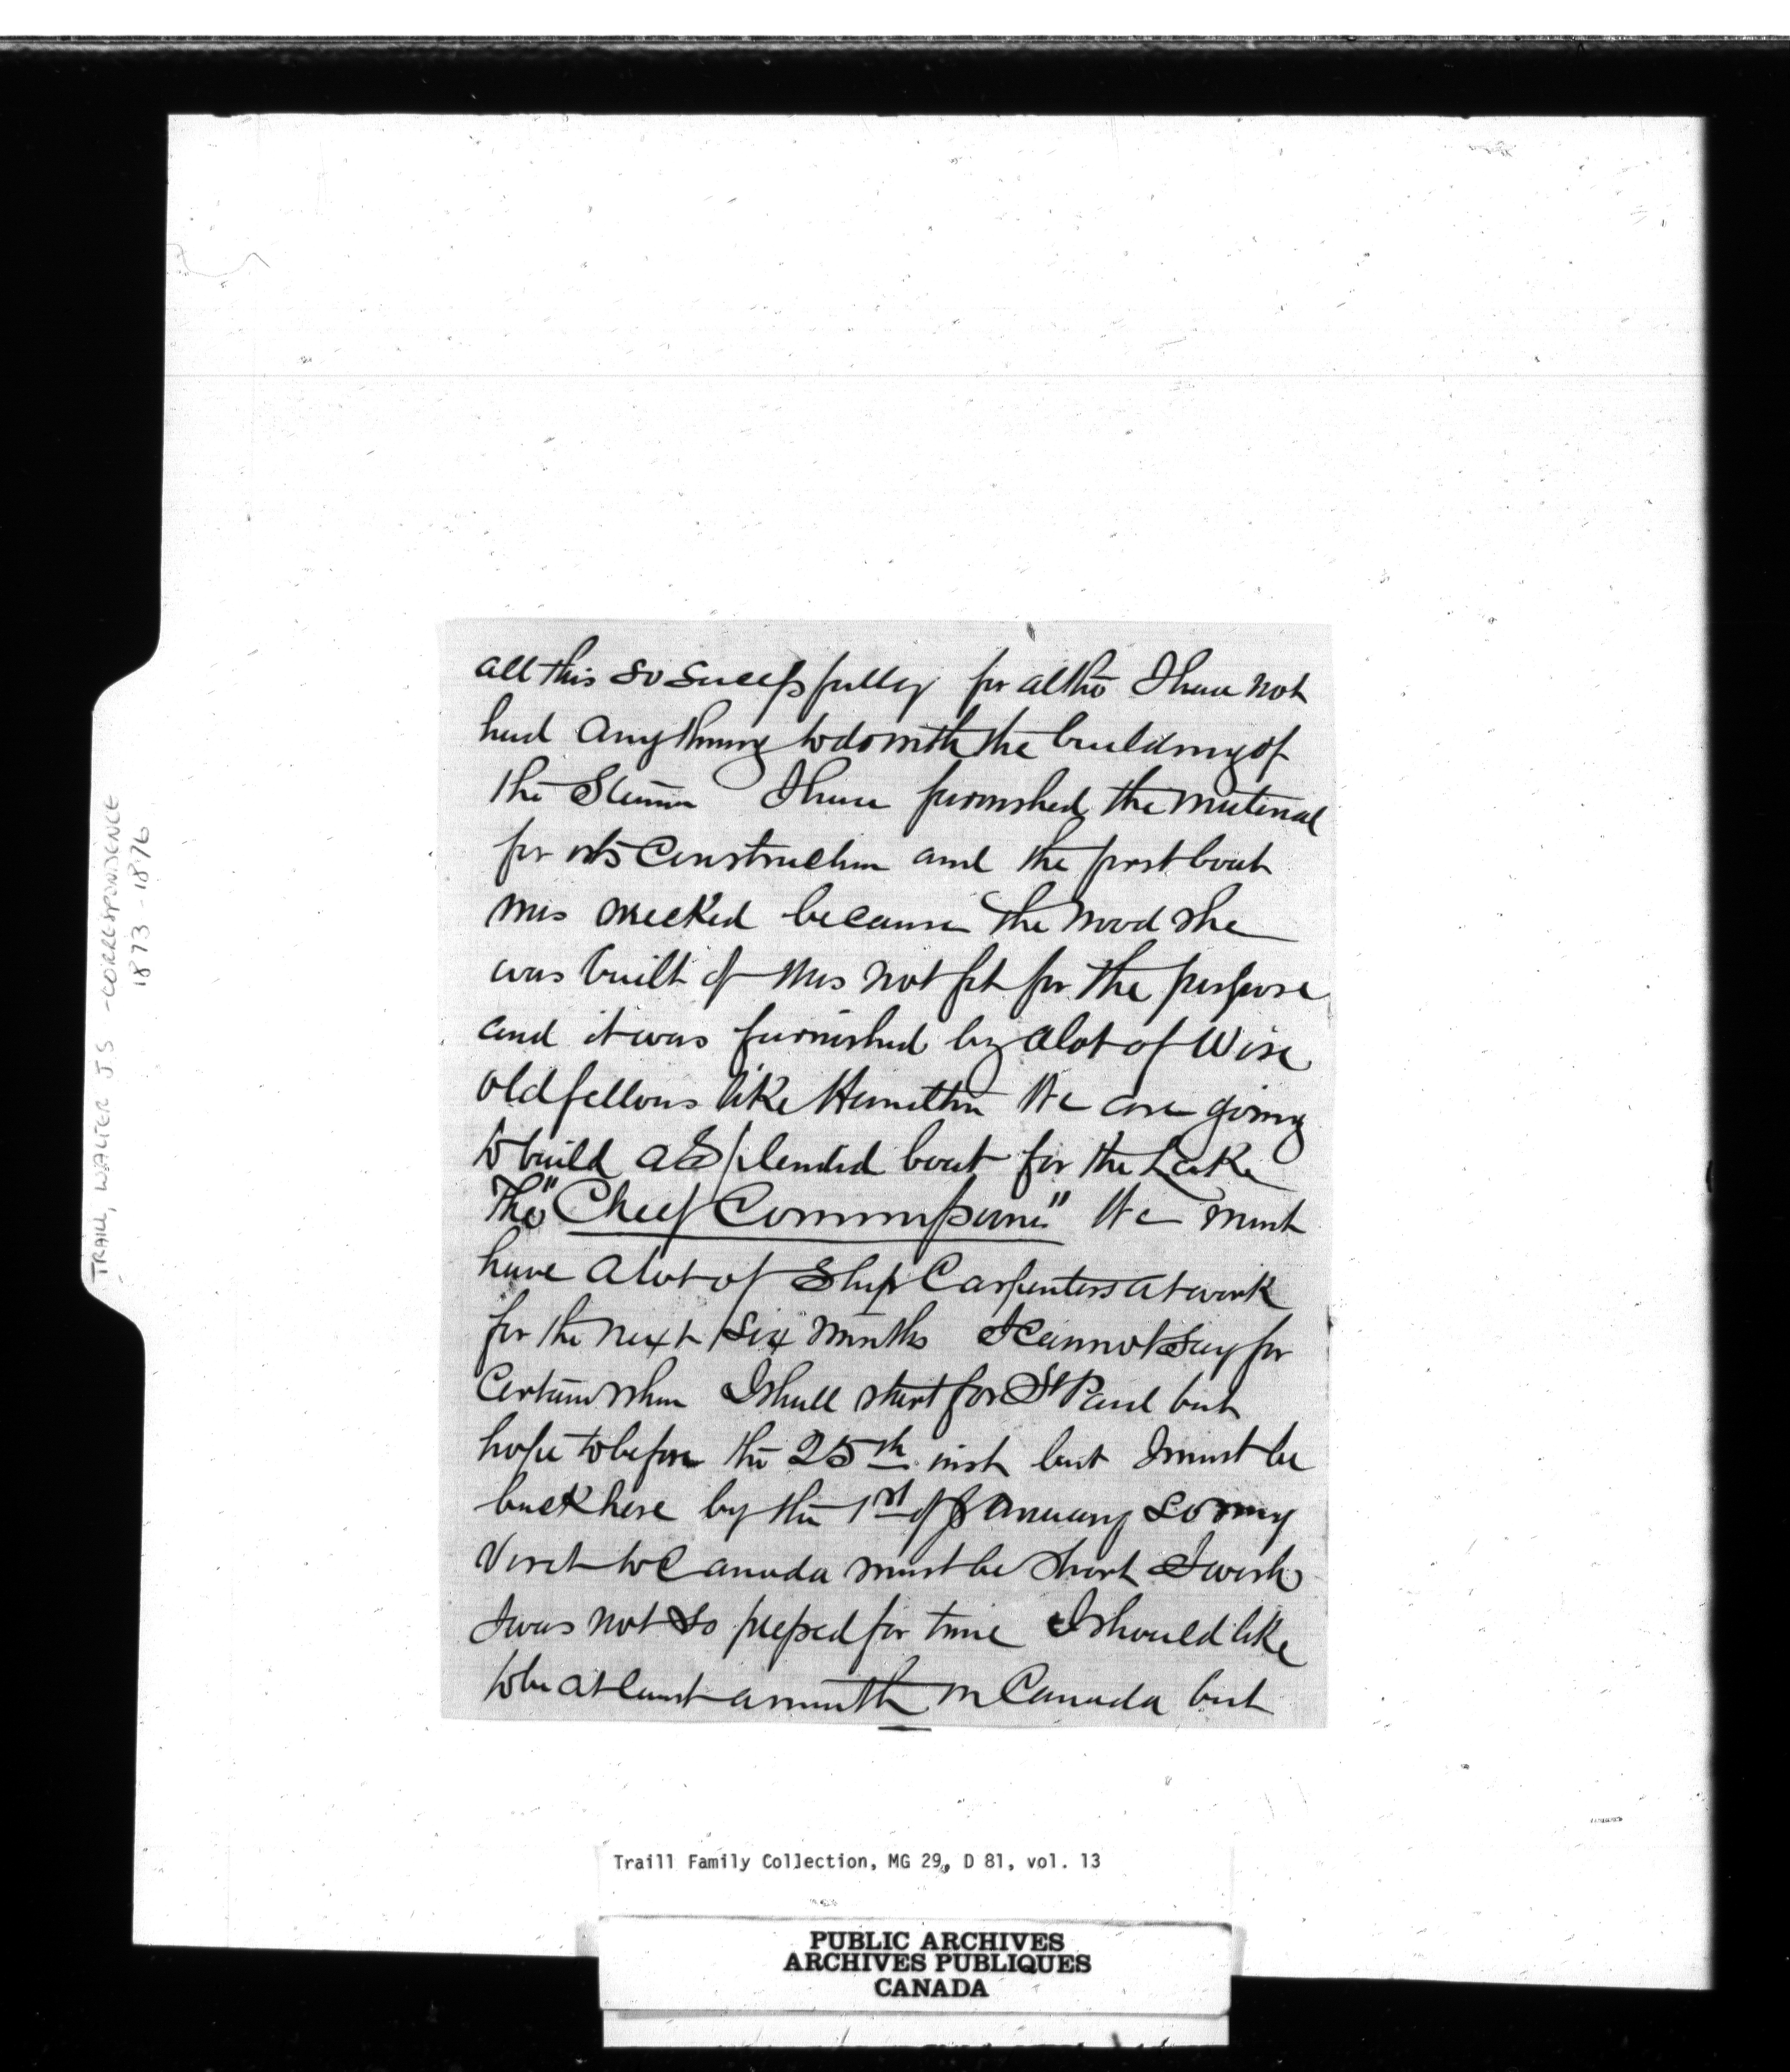 TRAILL, WALTER J.S - CORRESPONDENCE
1873-1876
all this so successfully for altho I have not
had anything to do with the building of
the Steamer I have furnished the material
for its Construction and the first boat
was wrecked because the wood she
was built of was not fit for the purpose
and it was furnished by a lot of Wise
old fellows like Hamilton We are going
to build a Splendid boat for the Lake
The "Chief Commissioner" We must
have a lot of Ship Carpenters at work
for the next six months I cannot say for
Certain when I shall start for St Paul but
hope to before the 25th inst but I must be
back here by the 1st of January so my
Visit to Canada must be short I wish
I was not so pressed for time I should like
to be at least a month in Canada but
Traill Family Collection, MG 29, D 81, vol. 13
PUBLIC ARCHIVES
ARCHIVES PUBLIQUES
CANADA